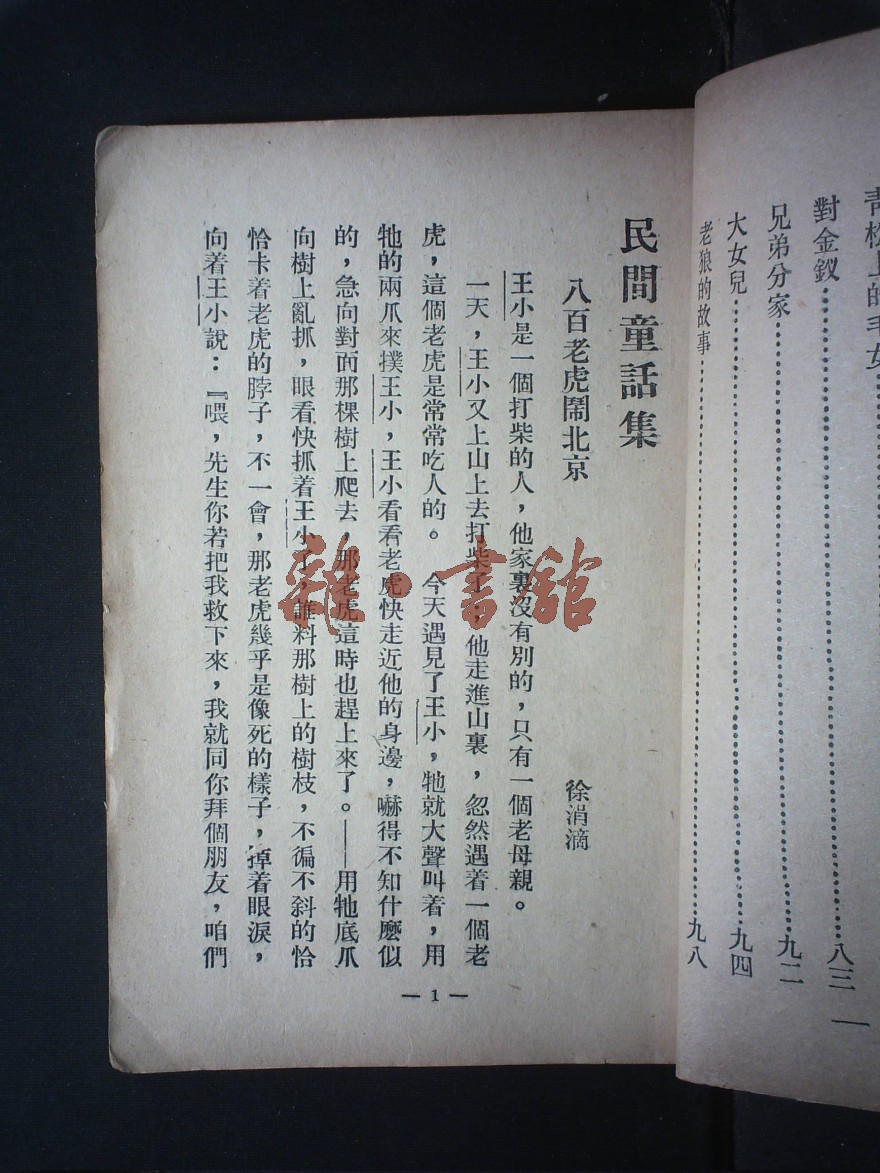 對金釵……八三
兄弟分家……九二
大女兒……九四
老狼的故事……九八
民間童話集
八百老虎鬧北京
徐涓滴
王小是一個打柴的人，他家裏沒有別的，只有一個老母親。
一天，王小又上山上去打柴了，他走進山裏，忽然遇着一個老
虎，這個老虎是常常吃人的。今天遇見了王小，牠就大聲叫着，用
牠的兩爪來撲王小，王小看看老虎快走近他的身邊，嚇得不知什麼似
的，急向對面那棵樹上爬去，那老虎這時也趕上來了。——用牠底爪
向樹上亂抓，眼看快抓着王小了，誰料那樹上的樹枝，不徧不斜的恰
恰卡着老虎的脖子，不一會，那老虎幾乎是像死的樣子，掉着眼淚，
向着王小說：『喂，先生你若把我救下來，我就同你拜個朋友，咱們
— 1 —
雜·書舘